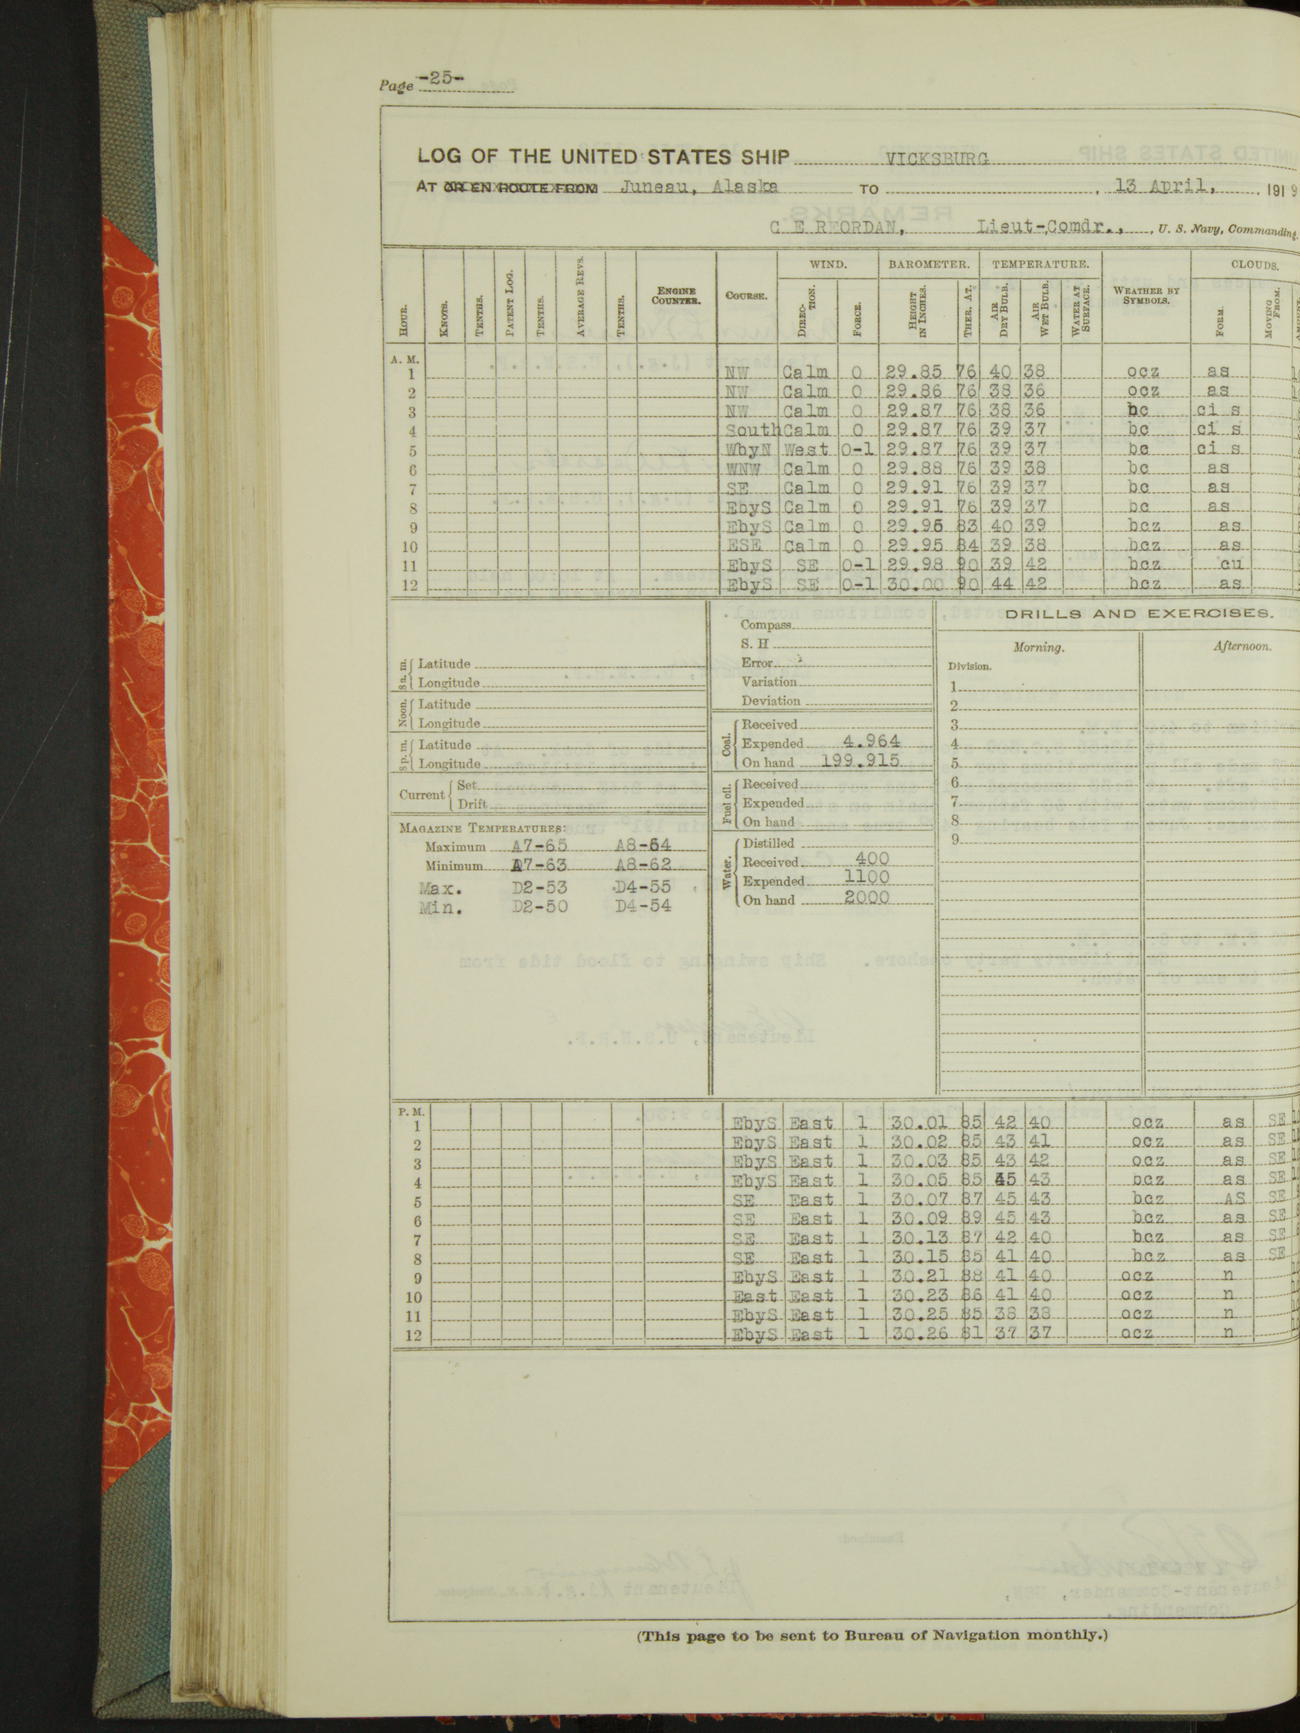 Page -25-
LOG OF THE UNITED STATES SHIP VICKSBURG
AT OR EN ROUTE FROM Juneau, Alaska TO , 13 April, , 1919
C E REORDAN, Lieut-Comdr., , U. S. Navy, Commanding.
WIND. BAROMETER. TEMPERATURE. CLOUDS.
HOUR. KNOTS. TENTHS. PATENT LOG. TENTHS. AVERAGE REVS. TENTHS. ENGINE COUNTER. COURSE. DIRECTION. FORCE. HEIGHT IN INCHES. THER. AT. AIR DRY BULB. AIR WET BULB. WATER AT SURFACE. WEATHER BY SYMBOLS. FORM. MOVING FROM.
A. M.
1 NW Calm 0 29.85 76 40 38 ocz as
2 NW Calm 0 29.86 76 38 36 ocz as
3 NW Calm 0 29.87 76 38 36 bc ci s
4 South Calm 0 29.87 76 39 37 bc ci s
5 WbyN West 0-1 29.87 76 39 37 bc ci s
6 WNW Calm 0 29.88 76 39 38 bc as
7 SE Calm 0 29.91 76 39 37 bc as
8 EbyS Calm 0 29.91 76 39 37 bc as
9 EbyS Calm 0 29.95 83 40 39 bcz as
10 ESE Calm 0 29.95 84 39 38 bcz as
11 EbyS SE 0-1 29.98 90 39 42 bcz cu
12 EbyS SE 0-1 30.00 90 44 42 bcz as
8 a. m. Latitude
Longitude
Noon. Latitude
Longitude
8 p. m. Latitude
Longitude
Current Set
Drift
MAGAZINE TEMPERATURES:
Maximum A7-65 A8-64
Minimum A7-63 A8-62
Max. D2-53 D4-55
Min. D2-50 D4-54
Compass
S. H
Error
Variation
Deviation
Coal. Received
Expended 4.964
On hand 199.915
Fuel oil. Received
Expended
On hand
Water. Distilled
Received 400
Expended 1100
On hand 2000
DRILLS AND EXERCISES.
Morning. Afternoon.
Division.
1
2
3
4
5
6
7
8
9
P. M.
1 EbyS East 1 30.01 85 42 40 ocz as SE
2 EbyS East 1 30.02 85 43 41 ocz as SE
3 EbyS East 1 30.03 85 43 42 ocz as SE
4 EbyS East 1 30.05 85 45 43 bcz as SE
5 SE East 1 30.07 87 45 43 bcz AS SE
6 SE East 1 30.09 89 45 43 bcz as SE
7 SE East 1 30.13 87 42 40 bcz as SE
8 SE East 1 30.15 85 41 40 bcz as SE
9 EbyS East 1 30.21 88 41 40 ocz n
10 East East 1 30.23 86 41 40 ocz n
11 EbyS East 1 30.25 85 38 38 ocz n
12 EbyS East 1 30.26 81 37 37 ocz n
(This page to be sent to Bureau of Navigation monthly.)